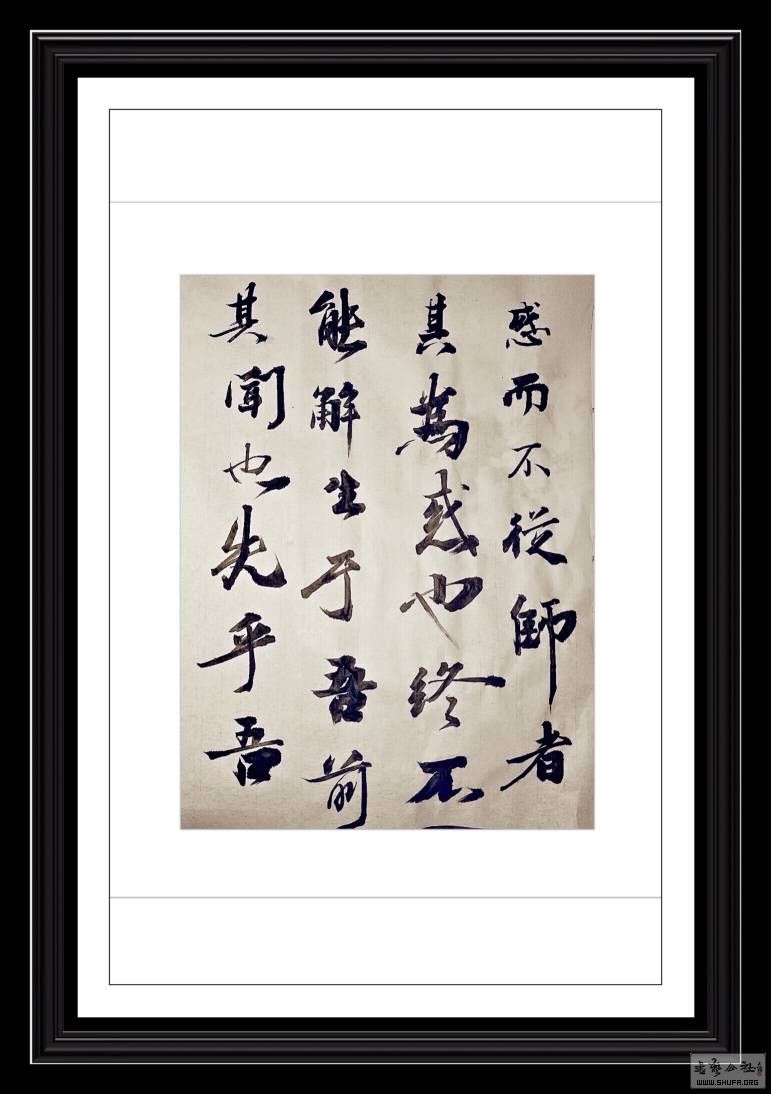 惑而不從師者
其為惑也终不
能解生于吾前
其聞也先乎吾
WWW.SHUFA.ORG